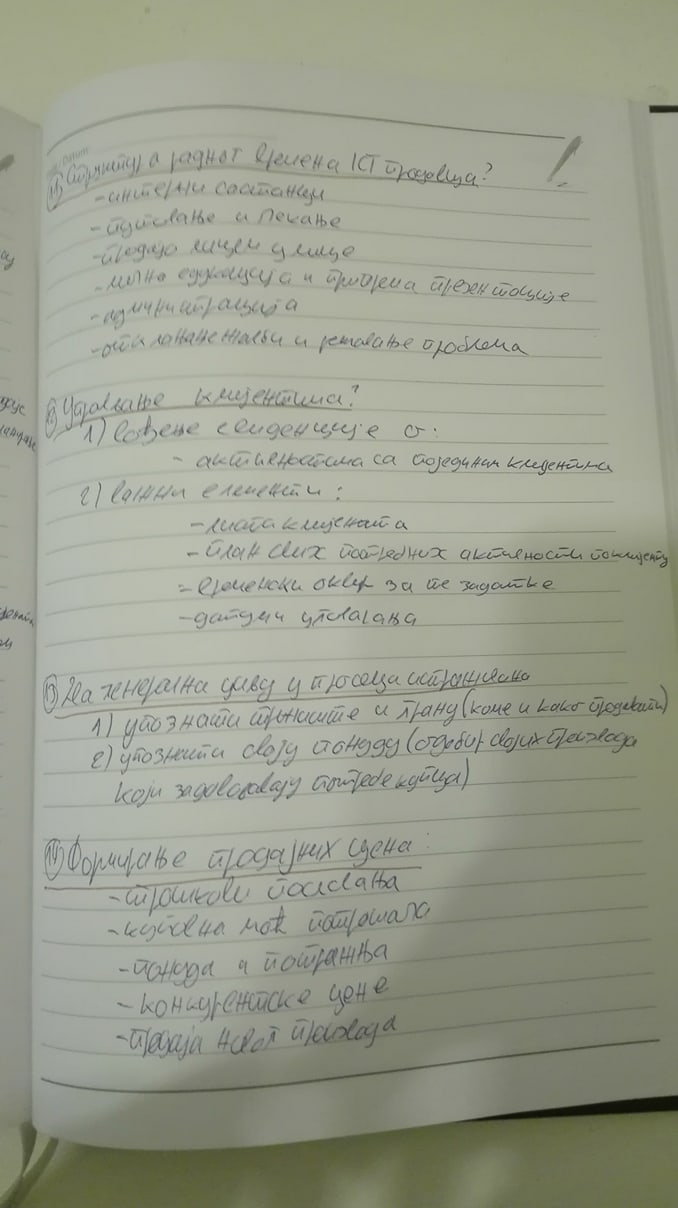 11) Структура радног времена КТ продавца? !
- интерни састанци
- путовање и чекање
- продаја лицем у лице
- лична едукација и припрема презентације
- администрација
- отклањање жалби и решавање проблема
12) Управљање клијентима?
1) Вођење евиденције о:
- активностима са појединим клијентима
2) важни елементи:
- листа клијената
- план свих потребних активности по клијенту
- временски оквир за те задатке
- датуми
13) Два генерална циља у процесу истраживања
1) упознати тржиште и грану (коме и како продавати)
2) упознати своју понуду (одабир својих производа
који задовољавају потребе купца)
14) Формирање продајних цена:
- трошкови пословања
- куповна моћ потрошача
- понуда и потражња
- конкурентске цене
- продаја новог производа